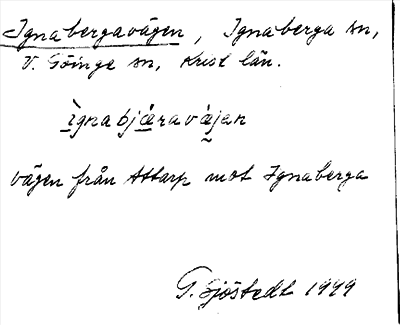 Ignabergavägen, Ignaberga sn,
V. Göinge sn, Krist län.
ìgnabjæ̀ravæ̀jan
vägen från Attarp mot Ignaberga
G. Sjöstedt 1949